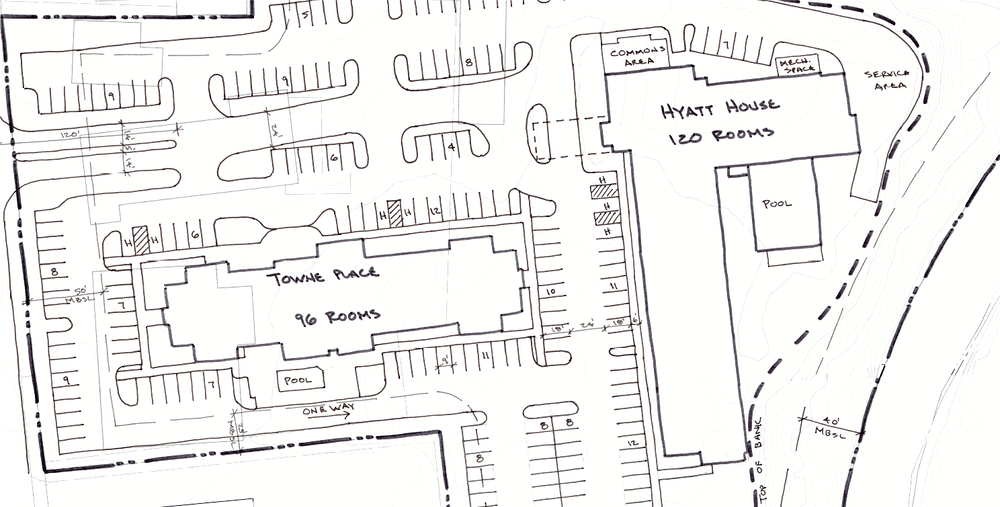 5
COMMONS
AREA
7
MECH.
SPACE
SERVICE
AREA
8
9
9
HYATT HOUSE
120 ROOMS
120'
6
4
H
H
H
POOL
H
H
6
H
H
12
TOWNE PLACE
96 ROOMS
8
50'
MBSL
7
10
11
18'
24'
18'
6'
9'
11
9
7
POOL
ONE WAY
8
8
8
12
TOP OF BANK
40'
MBSL